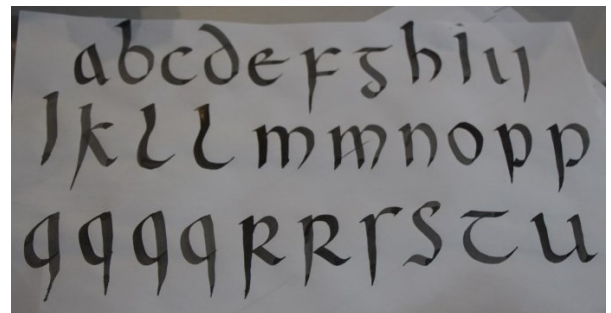 abcdefghiij
jkllmmnopp
qqqqrrrstu